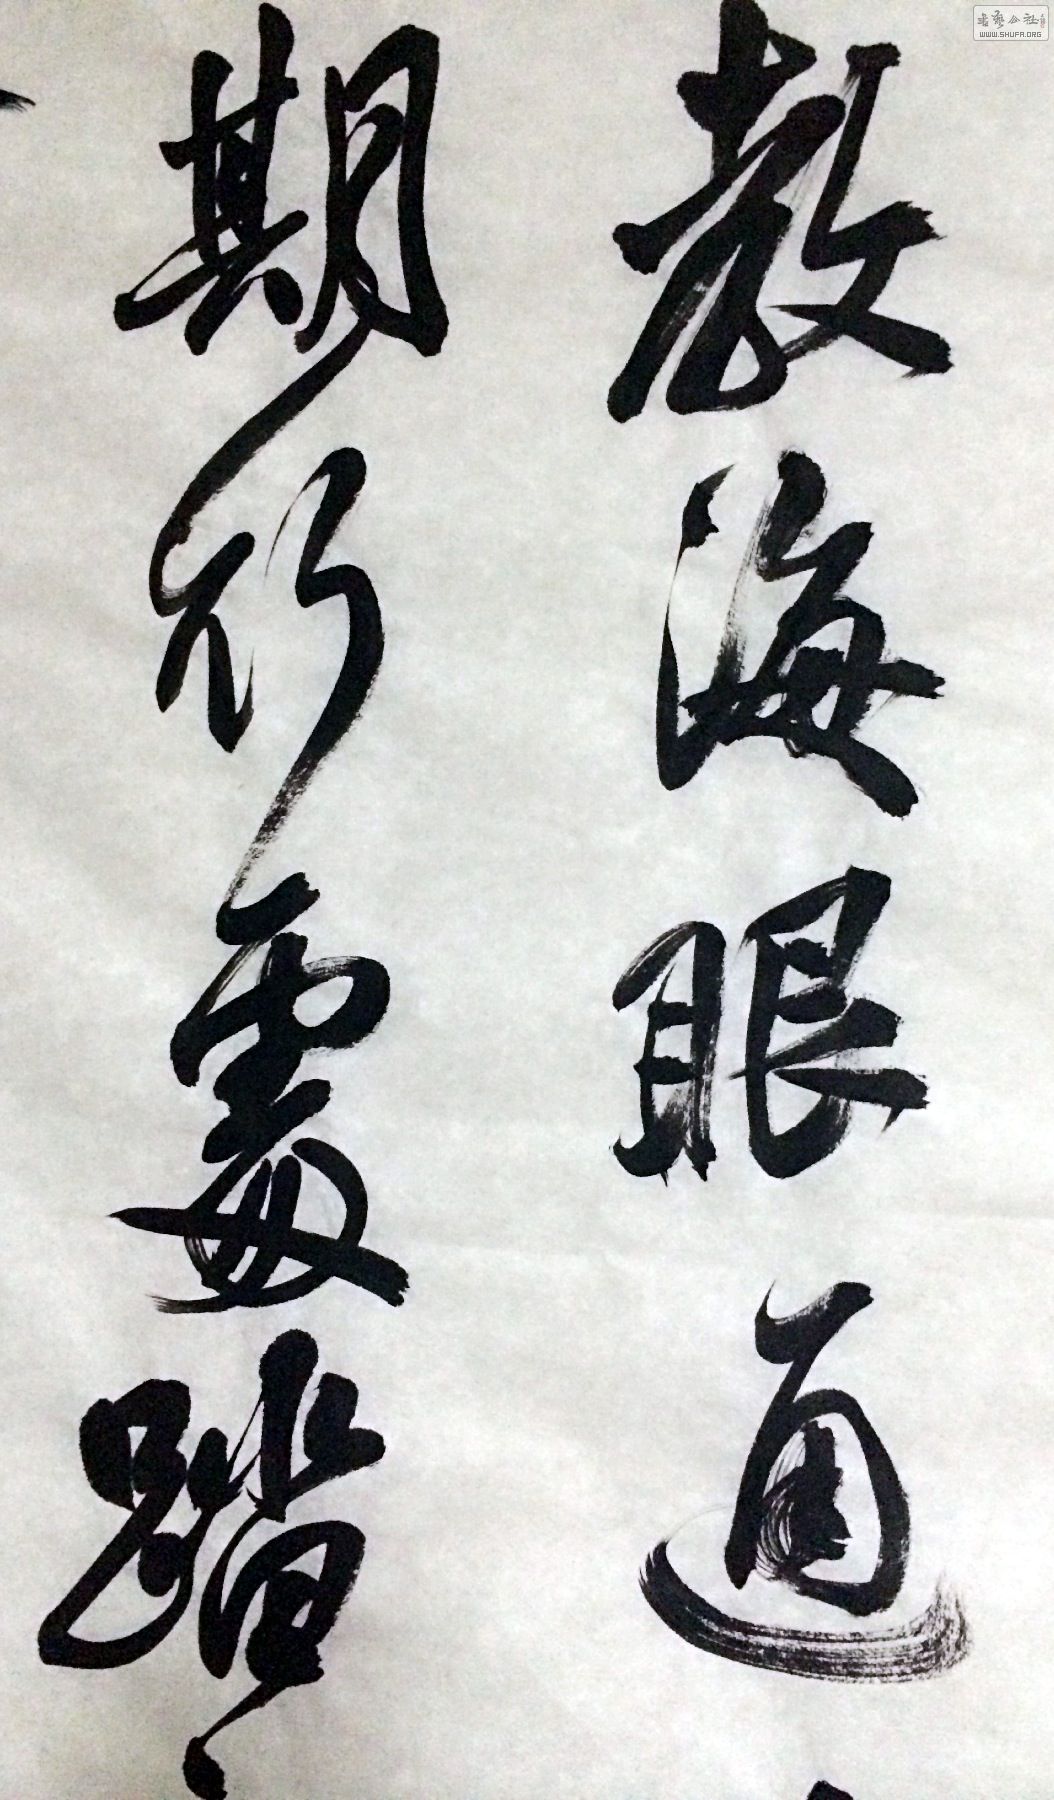 教海眼通
期行處踏
書藝公社
WWW.SHUFA.ORG